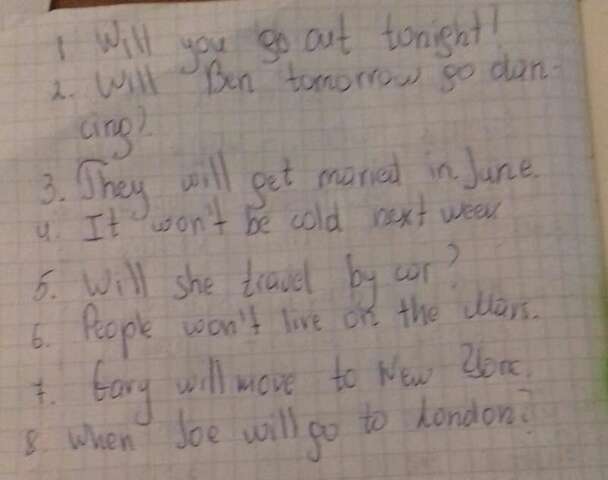 1. Will you go out tonight?
2. Will Ben tomorrow go dan-
cing?
3. They will get maried in June.
4. It won't be cold next week
5. Will she travel by car?
6. People won't live on the Mars.
7. Gary will move to New Yorc.
8. When Joe will go to London?